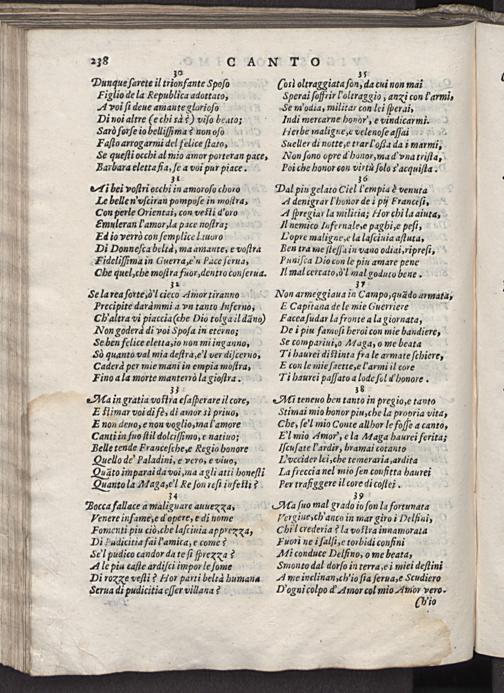 238 CANTO
30
Dunque sarete il trionfante Sposo
Figlio de la Republica adottato,
A voi si deue amante glorioso
Di noi altre (e chi sà?) viso beato;
Sarò forse io bellissima? non oso
Fasto arrogarmi del felice stato,
Se questi occhi al mio amor porteran pace,
Barbara eletta sia, se a voi pur piace.
31
Ai bei vostri occhi in amoroso choro
Le belle n'vsciran pompose in mostra,
Con perle Orientai, con vesti d'oro
Emuleran l'amor, la pace nostra;
Ed io verrò con semplice lauoro
Di Donnesca beltà, ma amante, e vostra
Fidelissima in Guerra, e'n Pace serua,
Che quel, che mostra fuor, dentro conserua.
32
Se la rea sorte, ò'l cieco Amor tiranno
Precipite darammi a vn tanto Inferno,
Ch'altra vi piaccia (che Dio volga il dãno)
Non goderà di voi Sposa in eterno;
Se ben felice eletta, io non m'inganno,
Sò quanto val mia destra, e'l ver discerno,
Caderà per mie mani in empia mostra,
Fino a la morte manterrò la giostra.
33
Ma in gratia vostra esasperare il core,
E stimar voi di fè, di amor sì priuo,
E non deuo, e non voglio, ma l'amore
Canti in suo stil dolcissimo, e natiuo;
Belle tende Francesche, e Regio honore
Quello de' Paladini, e vero, e viuo,
Quãto imparai da voi, ma agli atti honesti
Quanto la Maga, e'l Re son resi infesti?
34
Bocca fallace a malignare auuezza,
Venere infame, e d'opere, e di nome
Fomenti piu ciò, che lasciuia apprezza,
Di Pudicitia fai l'amica, e come?
Se'l pudico candor da te si sprezza?
A le piu caste ardisci impor le some
Di rozze vesti? Hor parti beltà humana
Serua di pudicitia esser villana?
35
Così oltraggiata son, da cui non mai
Sperai soffrir l'oltraggio, anzi con l'armi,
Se m'odia, militar con lei sperai,
Indi mercarne honor', e vindicarmi.
Herbe maligne, e velenose assai
Sueller di notte, e trar l'ossa dai marmi,
Non sono opre d'honor, ma d'vna trista,
Poiche honor con virtù solo s'acquista.
36
Dal piu gelato Ciel l'empia è venuta
A denigrar l'honor de i pij Francesi,
A spregiar la militia; Hor chi la aiuta,
Il nemico Infernale, e paghi, e pesi,
L'opre maligne, e la lasciuia astuta,
Ben tra me stessa in vano odiai, ripresi,
Punisca Dio con le piu amare pene
Il mal cercato, ò'l mal goduto bene.
37
Non armeggiaua in Campo, quãdo armata,
E Capitana de le mie Guerriere
Facea sudar la fronte a la giornata,
De i piu famosi heroi con mie bandiere,
Se comparini, o Maga, o me beata
Ti haurei distinta fra le armate schiere,
E con le mie saette, e l'armi il core
Ti haurei passato a lode sol d'honore.
38
Mi teneuo ben tanto in pregio, e tanto
Stimai mio honor piu, che la propria vita,
Che, se'l mio Conte allhor le fosse a canto,
E'l mio Amor', e la Maga haurei ferita;
Iscusate l'ardir, bramai cotanto
L'vccider lei, che temeraria, ardita
La freccia nel mio sen confitta haurei
Per trafiggere il core di costei.
39
Ma suo mal grado io son la fortunata
Vergine, ch'anco in mar giro i Delfini,
Chi'l crederia? la vostra innamorata
Fuori ne i salsi, e torbidi confini
Mi conduce Delfino, o me beata,
Smonto dal dorso in terra, e i miei destini
A me inclinan, ch'io sia serua, e Scudiero
D'ogni colpo d'Amor col mio Amor vero.
Ch'io